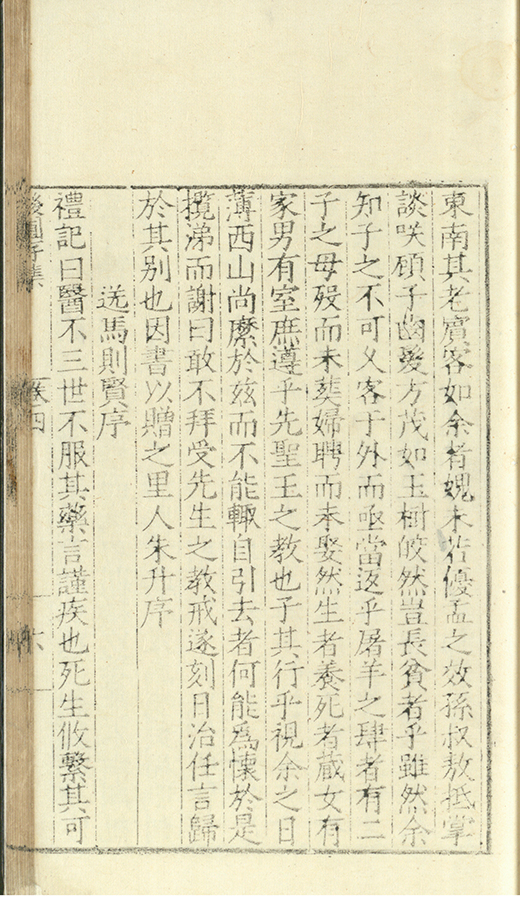 東南其老賔客如余者媿未佐優孟之效孫叔敖抵掌
談咲顧子幽愛方茂如玉樹皎然豈長貧者乎雖然余
知子之不可乆客于外而亟當返乎屠羊之肆者有二
子之母殁而未葬婦聘而未娶然生者養死者蔵女有
家男有室庶遵乎先聖王之教也子其行乎視余之日
薄西山尚縻於兹而不能輙自引去者何能爲懷於是
攬涕而謝曰敢不拜受先生之教戒遂刻日治任言歸
於其别也因書以贈之里人朱升序
送馬則賢序
禮記曰醫不三世不服其藥言謹疾也死生攸繫其可
後圃存集
卷四
六